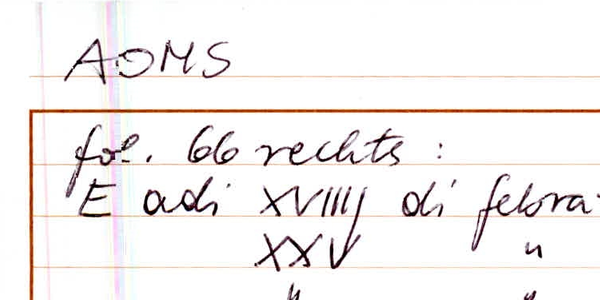 AOMS
fol. 66 rechts :
E adi XVIIII di febra
XXV "
" "